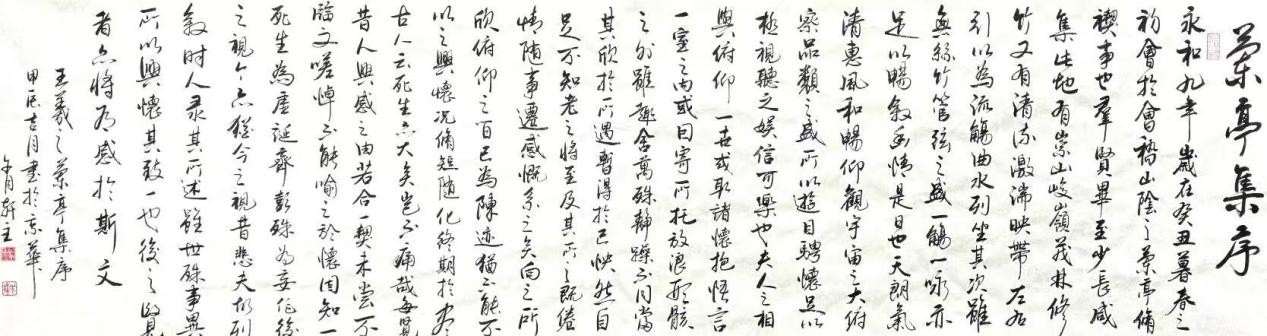 蘭亭集序
永和九年歲在癸丑暮春之
初會於會稽山陰之蘭亭脩
禊事也羣賢畢至少長咸
集此地有崇山峻嶺茂林修
竹又有清流激湍映帶左右
引以為流觴曲水列坐其次雖
無絲竹管弦之盛一觴一詠亦
足以暢敘幽情是日也天朗氣
清惠風和暢仰觀宇宙之大俯
察品類之盛所以遊目騁懷足以
極視聽之娛信可樂也夫人之相
與俯仰一世或取諸懷抱悟言
一室之內或因寄所托放浪形骸
之外雖趣舍萬殊靜躁不同當
其欣於所遇暫得於己怏然自
足不知老之將至及其所之既倦
情隨事遷感慨系之矣向之所
欣俯仰之間已為陳迹猶不能不
以之興懷況脩短隨化終期於盡
古人云死生亦大矣豈不痛哉每覽
昔人興感之由若合一契未嘗不
臨文嗟悼不能喻之於懷固知一
死生為虛誕齊彭殤為妄作後
之視今亦猶今之視昔悲夫故列
敘時人录其所述雖世殊事異
所以興懷其致一也後之覽
者亦將有感於斯文
王羲之蘭亭集序
甲辰吉月書於京華
月軒主